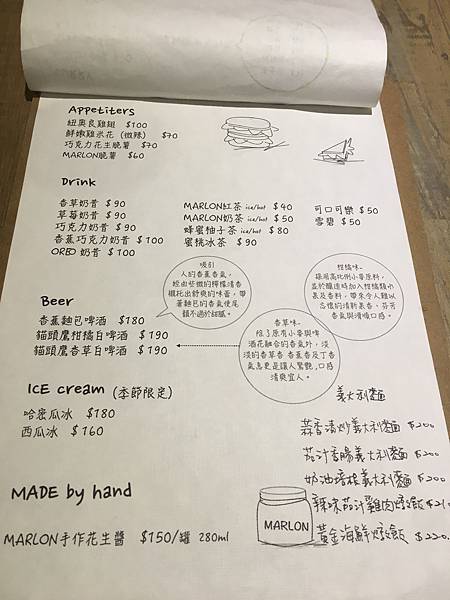 Appetiters
紐奧良雞翅 $100
鮮嫩雞米花 (微辣) $70
巧克力花生脆薯 $70
MARLON脆薯 $60
Drink
香草奶昔 $90
草莓奶昔 $90
巧克力奶昔 $90
香蕉巧克力奶昔 $100
OREO 奶昔 $100
MARLON紅茶 ice/hot $40
MARLON奶茶 ice/hot $50
蜂蜜柚子茶 ice/hot $80
蜜桃冰茶 $90
可口可樂 $50
雪碧 $50
Beer
香蕉麵包啤酒 $180
貓頭鷹柑橘白啤酒 $190
貓頭鷹香草白啤酒 $190
吸引
人的香蕉香氣,
經由些微的檸檬清香
襯托出舒爽的味蕾,帶
著麵包的香氣使尾
韻不過於甜膩。
柑橘味-
採用高比例小麥原料,
並於釀造時加入柑橘類水
果及香料,帶來令人難以
忘懷的清新果香、芬芳
香氣與滑順口感。
香草味-
除了原有小麥與啤
酒花融合的香氣外,淡
淡的香草香 香蕉香及丁香
氣息更是讓人驚艷,口感
清爽宜人。
ICE cream (季節限定)
哈密瓜冰 $180
西瓜冰 $160
義大利麵
蒜香清炒義大利麵 $200
茄汁香腸義大利麵 $200
奶油培根義大利麵 $200
辣味茄汁雞肉燉飯 $210
黃金海鮮燉飯 $220.
MADE by hand
MARLON手作花生醬 $150/罐 280ml
MARLON